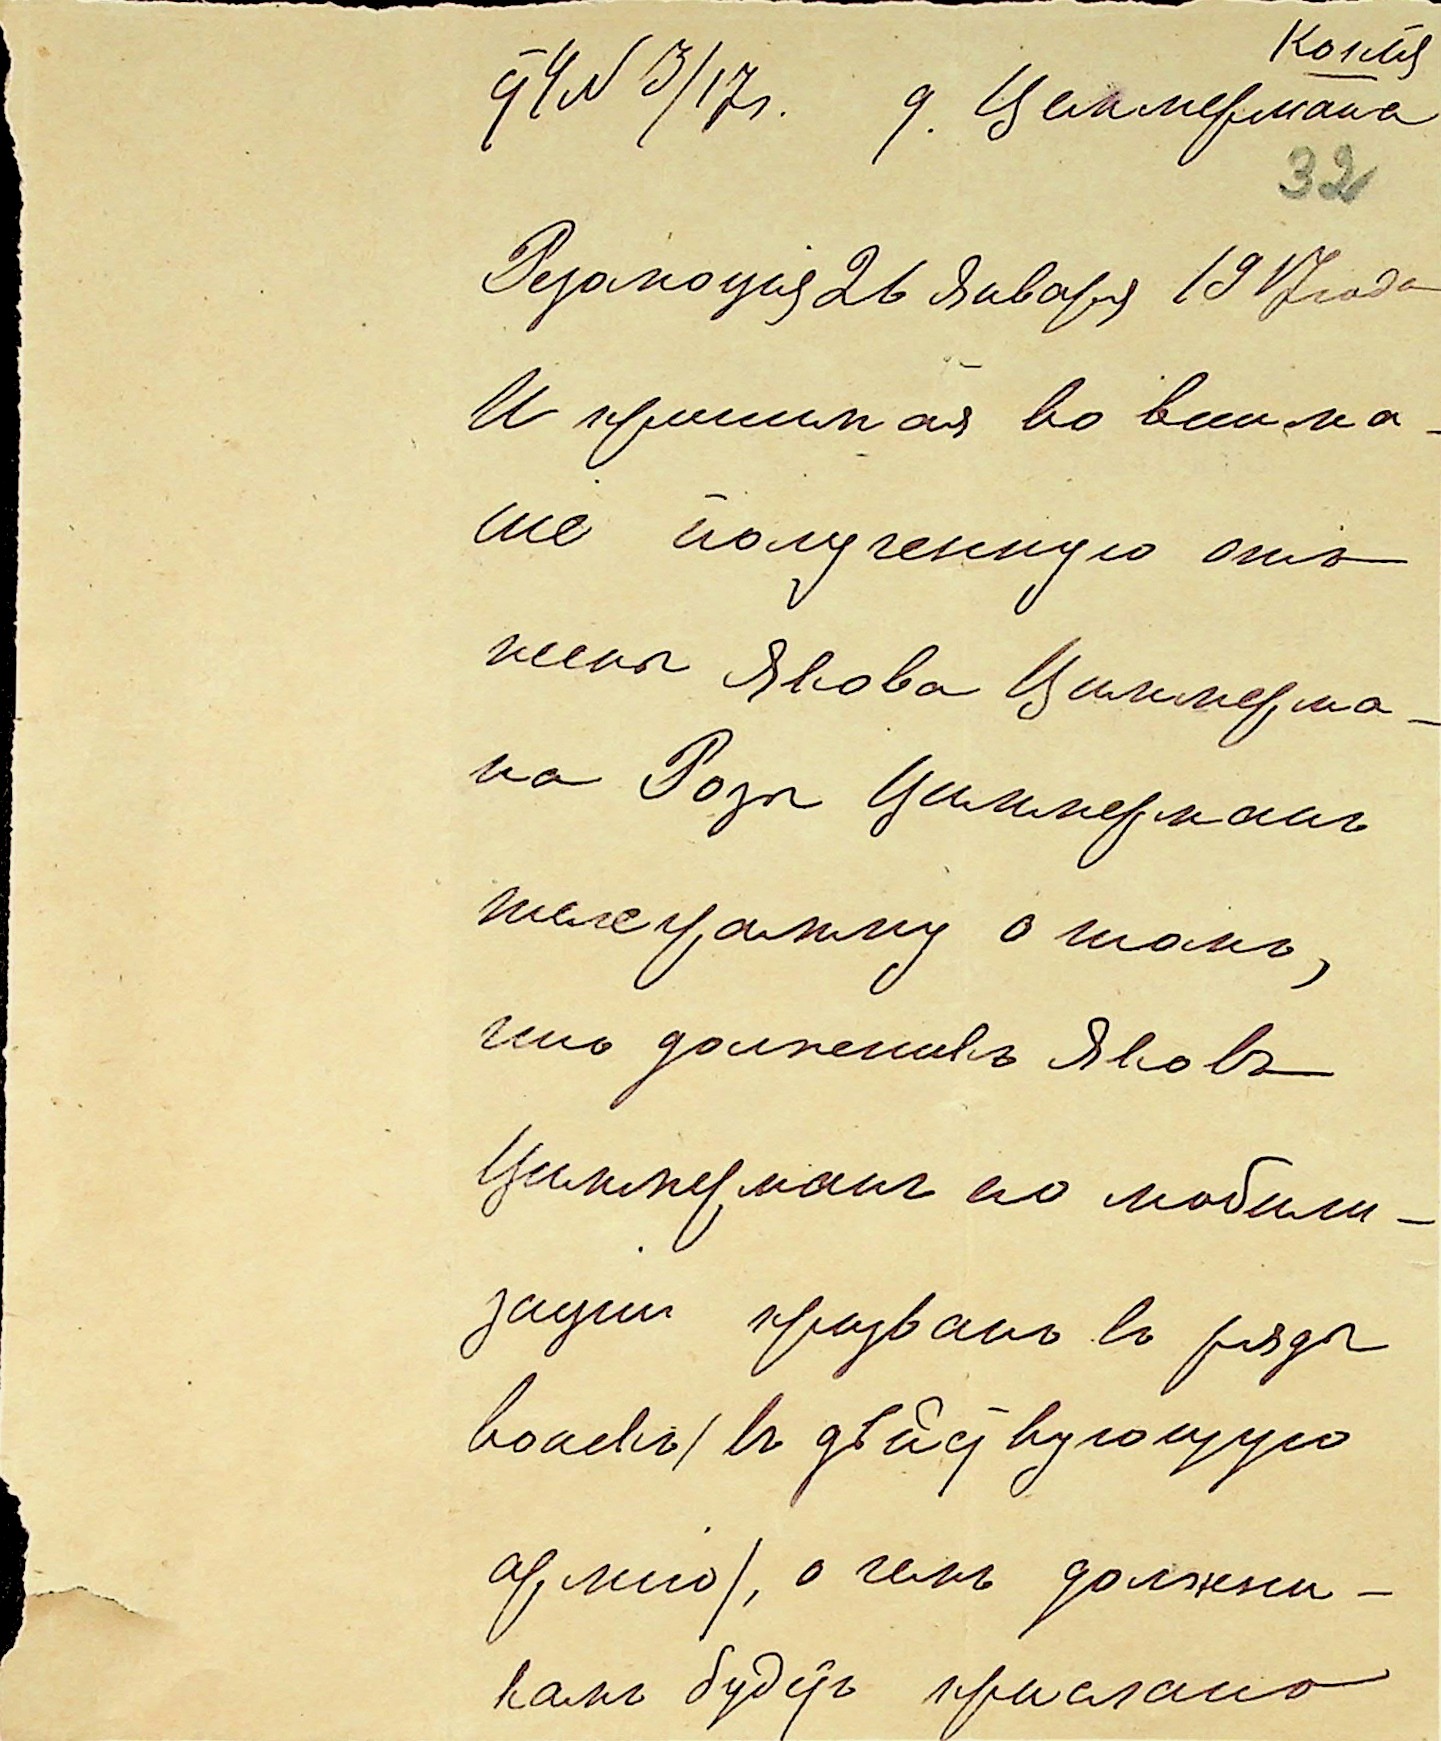 Копія
№ 3/17 г. д. Циммермана
32
Резолюція 26 Января 1917 года
И принимая во внима-
ніе полученную отъ
жены Якова Циммерма-
на Розы Циммерманъ
телеграмму о томъ,
что должникъ Яковъ
Циммерманъ по мобили-
заціи призванъ въ ряды
войскъ / въ дѣйствующую
армію /, о чемъ должни-
камъ будетъ прислано